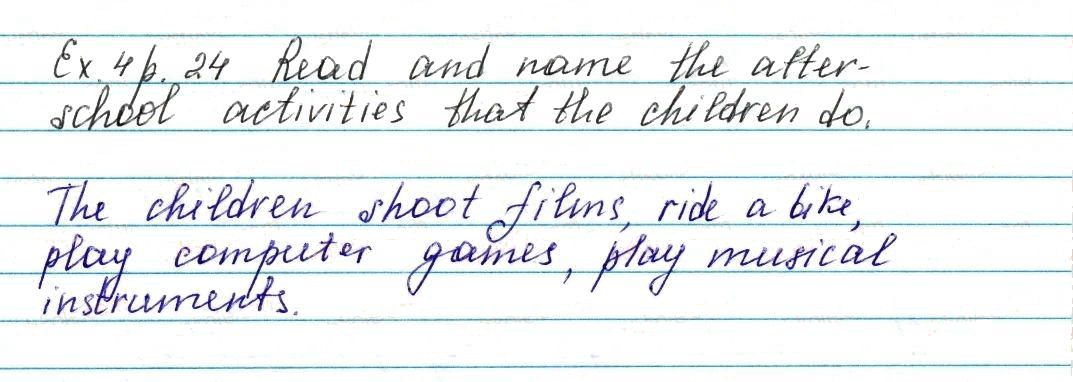 Ex. 4 p. 24 Read and name the after-
school activities that the children do.
The children shoot films, ride a bike,
play computer games, play musical
instruments.